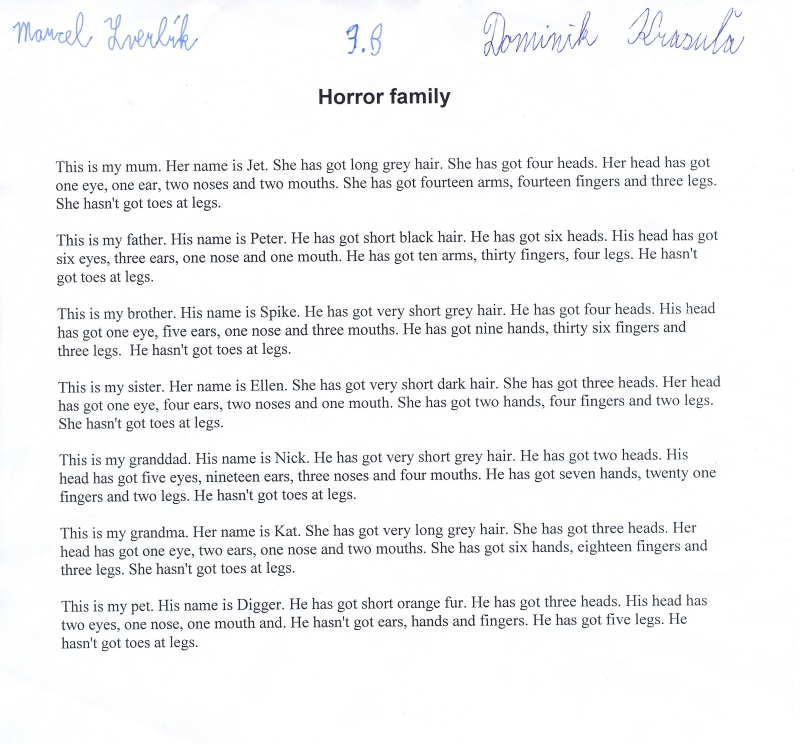 Marcel Zverlík 7.B Dominik Krasuľa
Horror family
This is my mum. Her name is Jet. She has got long grey hair. She has got four heads. Her head has got
one eye, one ear, two noses and two mouths. She has got fourteen arms, fourteen fingers and three legs.
She hasn't got toes at legs.
This is my father. His name is Peter. He has got short black hair. He has got six heads. His head has got
six eyes, three ears, one nose and one mouth. He has got ten arms, thirty fingers, four legs. He hasn't
got toes at legs.
This is my brother. His name is Spike. He has got very short grey hair. He has got four heads. His head
has got one eye, five ears, one nose and three mouths. He has got nine hands, thirty six fingers and
three legs.  He hasn't got toes at legs.
This is my sister. Her name is Ellen. She has got very short dark hair. She has got three heads. Her head
has got one eye, four ears, two noses and one mouth. She has got two hands, four fingers and two legs.
She hasn't got toes at legs.
This is my granddad. His name is Nick. He has got very short grey hair. He has got two heads. His
head has got five eyes, nineteen ears, three noses and four mouths. He has got seven hands, twenty one
fingers and two legs. He hasn't got toes at legs.
This is my grandma. Her name is Kat. She has got very long grey hair. She has got three heads. Her
head has got one eye, two ears, one nose and two mouths. She has got six hands, eighteen fingers and
three legs. She hasn't got toes at legs.
This is my pet. His name is Digger. He has got short orange fur. He has got three heads. His head has
two eyes, one nose, one mouth and. He hasn't got ears, hands and fingers. He has got five legs. He
hasn't got toes at legs.